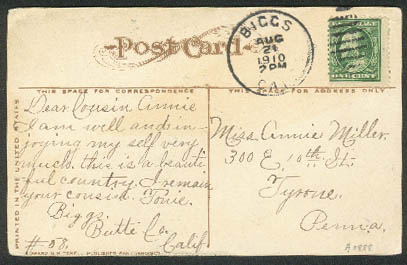 Post Card.
BIGGS
AUG
21
1910
2 PM
CAL.
ONE CENT
THIS SPACE FOR CORRESPONDENCE
THIS SPACE FOR ADDRESS ONLY
PRINTED IN THE UNITED STATES
Dear Cousin Annie
I am well and in-
joying my self very
much. this is a beauti
ful country. I remain
your cousin. Tonie.
Biggs
Butte Co.
#58. Calif.
Miss Annie Miller.
300 E. 10th St.
Tyrone.
Penna.
PUBLISHER SAN FRANCISCO